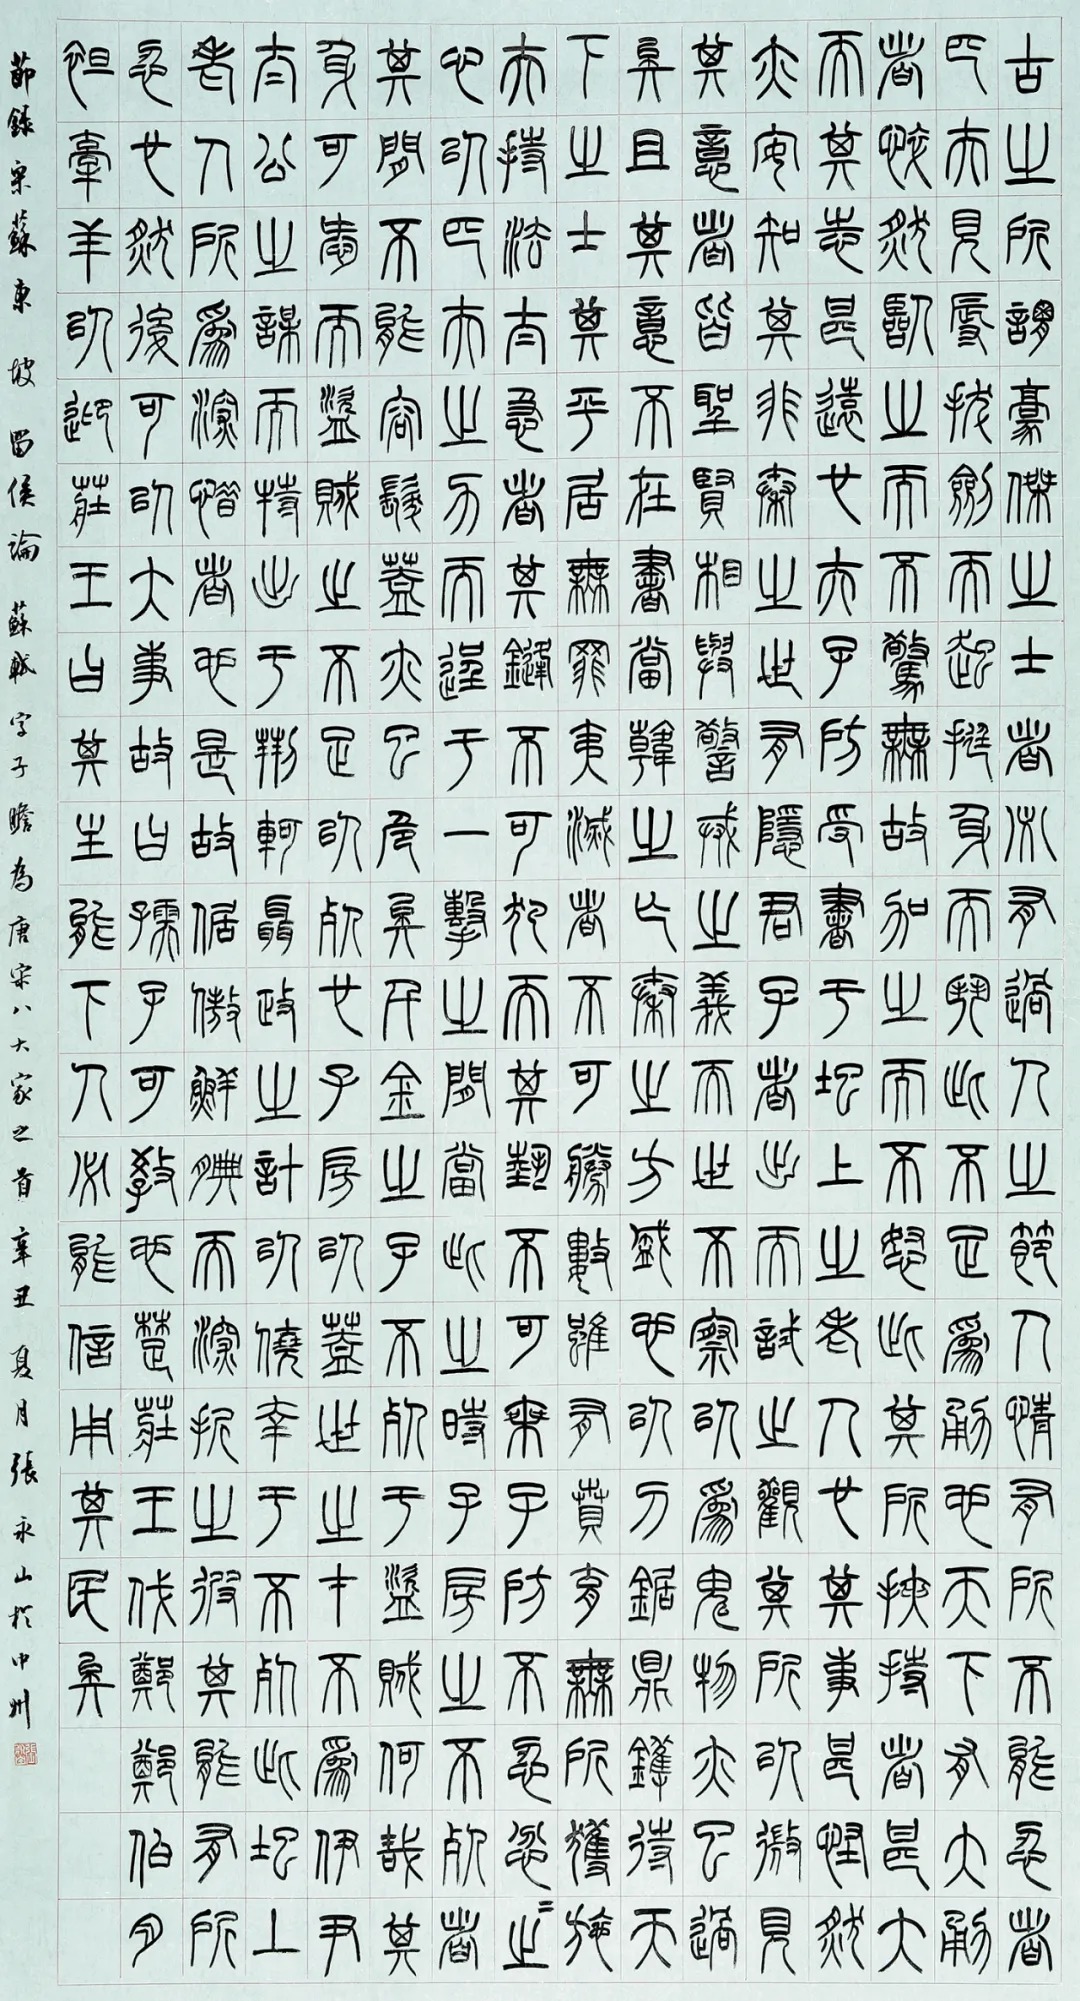 古之所謂豪傑之士者必有過人之節人情有所不能忍者
匹夫見辱拔劍而起挺身而鬥此不足為勇也天下有大勇
者猝然臨之而不驚無故加之而不怒此其所挾持者甚大
而其志甚遠也夫子房受書于圯上之老人也其事甚怪然
亦安知其非秦之世有隱君子者出而試之觀其所以微見
其意者皆聖賢相與警戒之義而世不察以為鬼物亦已過
矣且其意不在書當韓之亡秦之方盛也以刀鋸鼎鑊待天
下之士其平居無罪夷滅者不可勝數雖有賁育無所獲施
夫持法太急者其鋒不可犯而其埶不可乘子房不忍忿〻之
心以匹夫之力而逞于一擊之間當此之時子房之不死者
其間不能容髮蓋亦已危矣千金之子不死于盜賊何哉其
身可愛而盜賊之不足以死也子房以蓋世之才不為伊尹
太公之謀而特出于荊軻聶政之計以僥幸于不死此圯上
老人所為深惜者也是故倨傲鮮腆而深折之彼其能有所
忍也然後可以大事故曰孺子可教也楚莊王伐鄭鄭伯肉
袒牽羊以迎莊王曰其主能下人必能信用其民矣
節錄宋蘇東坡留侯論 蘇軾字子瞻為唐宋八大家之首辛丑夏月張永山於中州